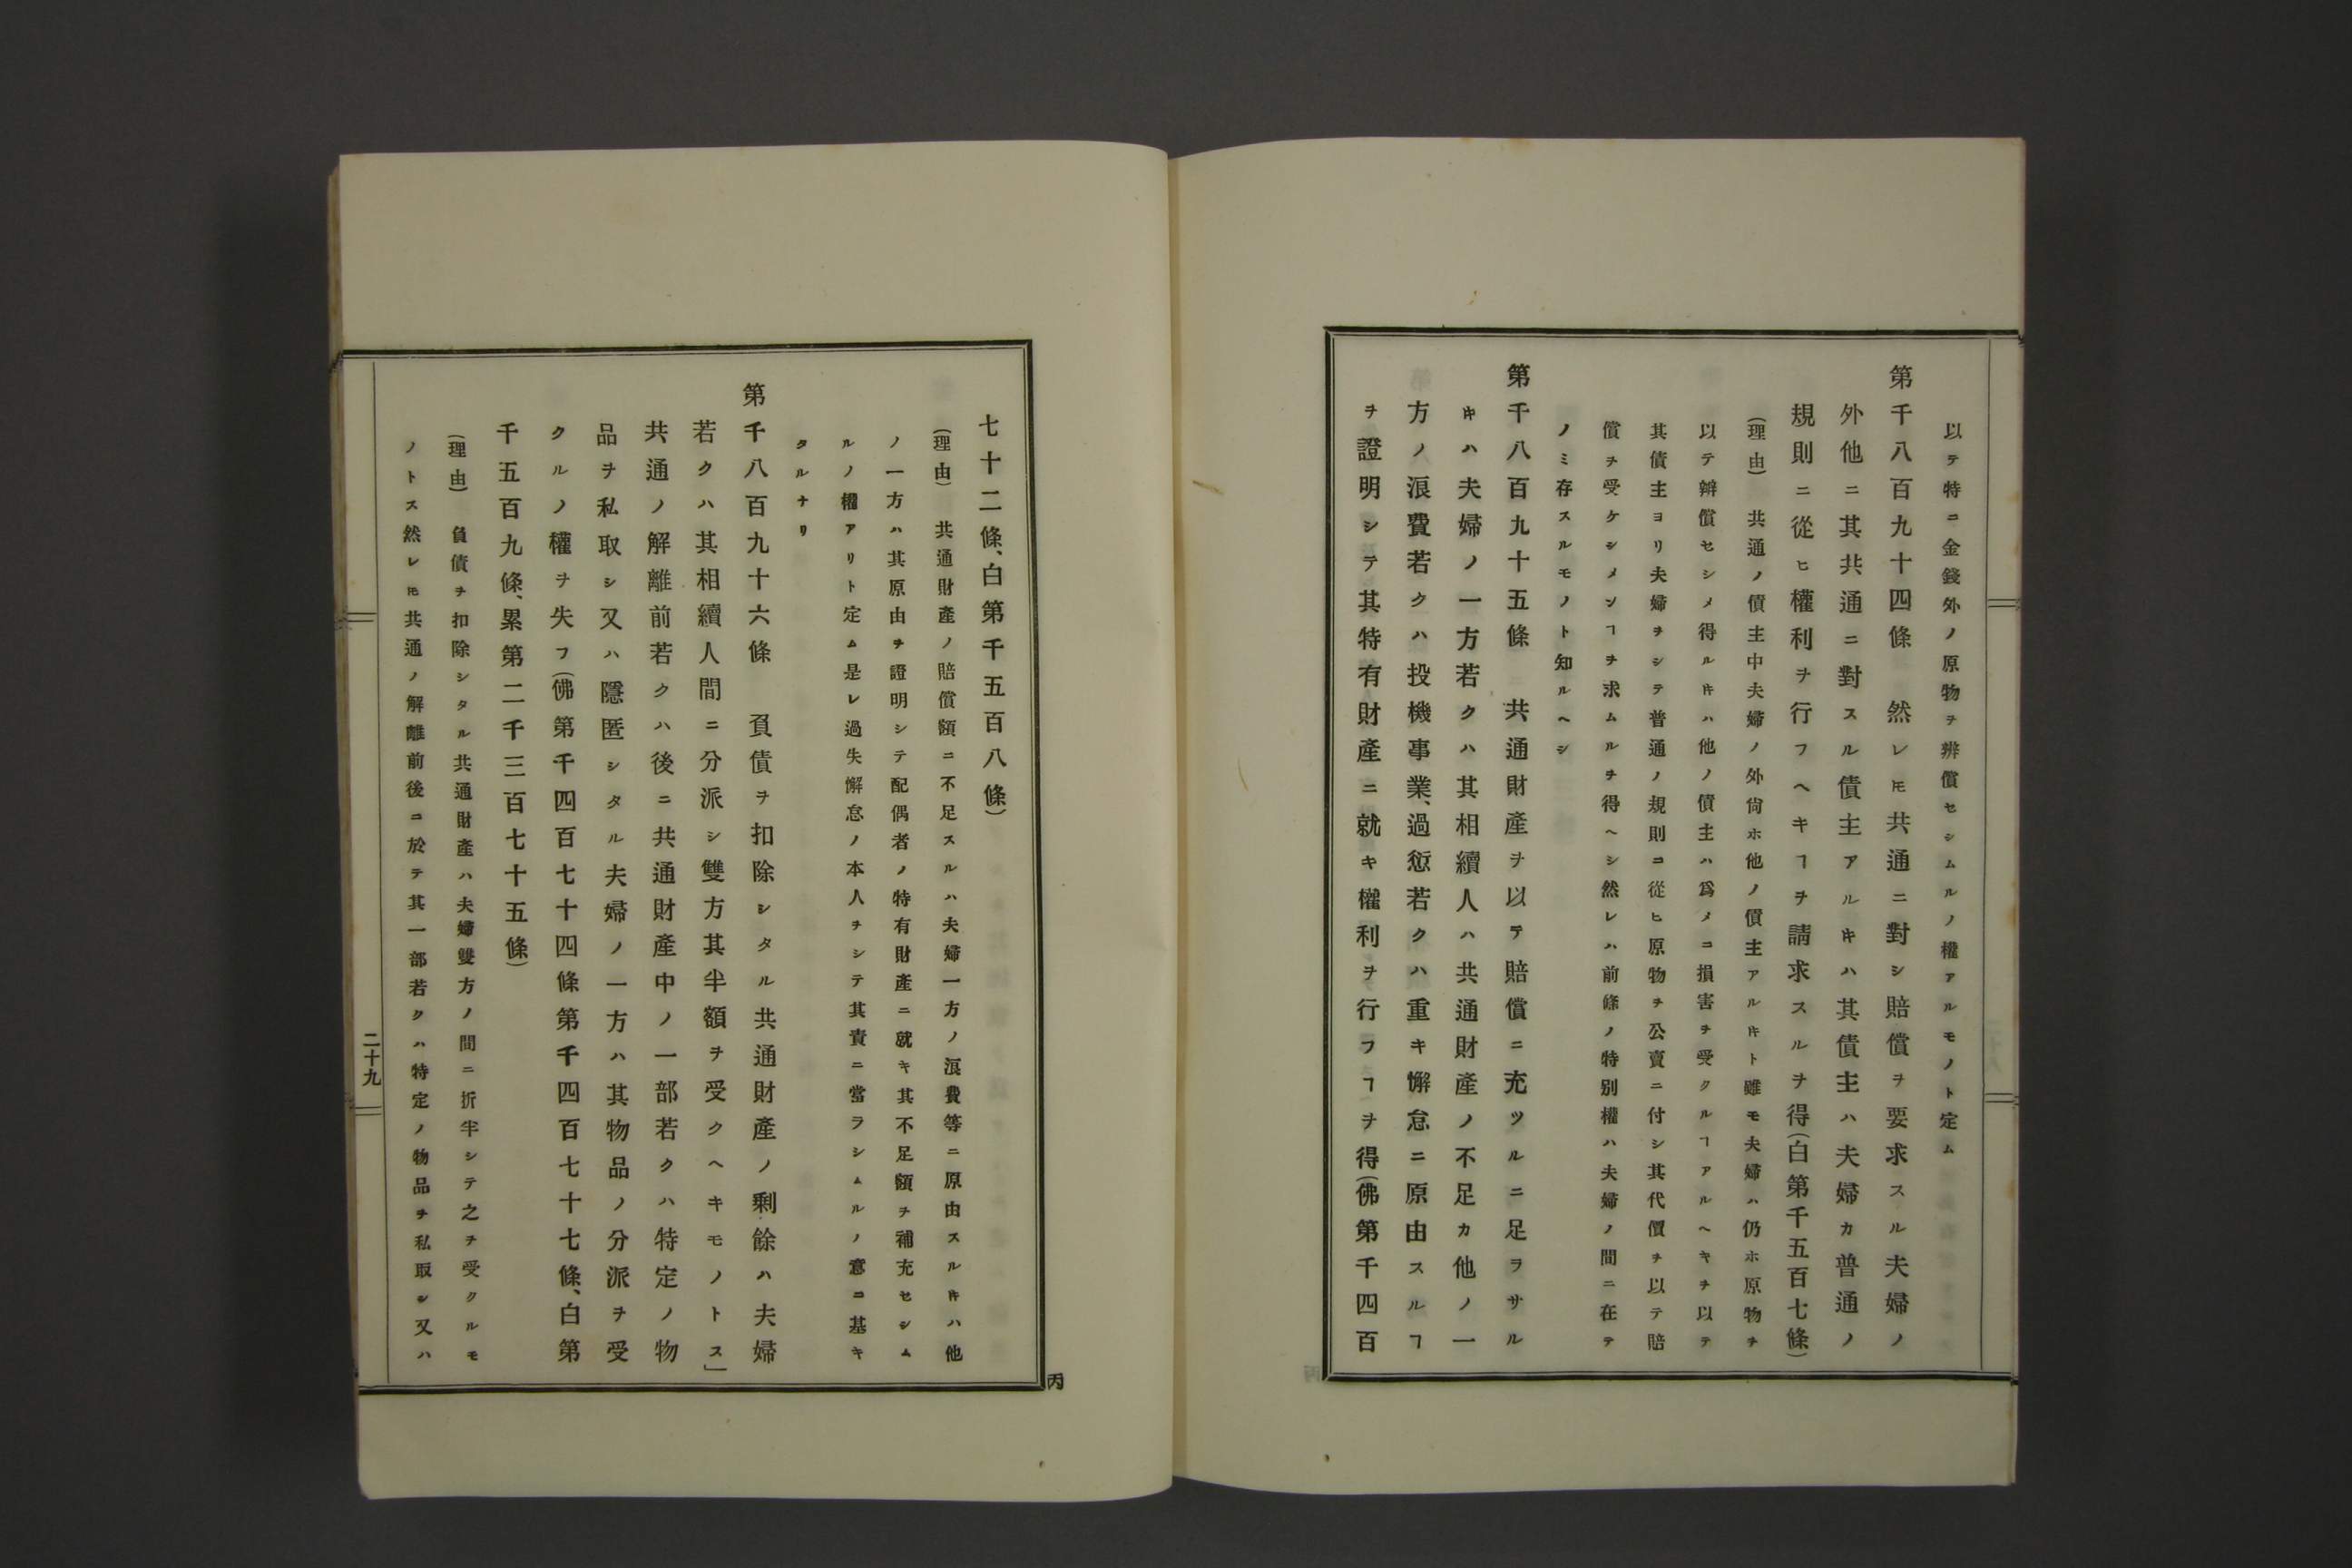 以テ特ニ金錢外ノ原物ヲ辨償セシムルノ權アルモノト定ム
第千八百九十四條　然レ𪜈共通ニ對シ賠償ヲ要求スル夫婦ノ
外他ニ其共通ニ對スル債主アルキハ其債主ハ夫婦カ普通ノ
規則ニ從ヒ權利ヲ行フヘキヿヲ請求スルヲ得(白第千五百七條)
(理由)　共通ノ債主中夫婦ノ外尙ホ他ノ債主アルキト雖モ夫婦ハ仍ホ原物ヲ
以テ辨償セシメ得ルキハ他ノ債主ハ爲メニ損害ヲ受クルヿアルヘキヲ以テ
其債主ヨリ夫婦ヲシテ普通ノ規則ニ從ヒ原物ヲ公賣ニ付シ其代價ヲ以テ賠
償ヲ受ケシメンヿヲ求ムルヲ得ヘシ然レハ前條ノ特別權ハ夫婦ノ間ニ在テ
ノミ存スルモノト知ルヘシ
第千八百九十五條　共通財產ヲ以テ賠償ニ充ツルニ足ラサル
キハ夫婦ノ一方若クハ其相續人ハ共通財產ノ不足カ他ノ一
方ノ浪費若クハ投機事業、過愆若クハ重キ懈怠ニ原由スルヿ
ヲ證明シテ其特有財產ニ就キ權利ヲ行フヿヲ得(佛第千四百
七十二條、白第千五百八條)
(理由)　共通財產ノ賠償額ニ不足スルハ夫婦一方ノ浪費等ニ原由スルキハ他
ノ一方ハ其原由ヲ證明シテ配偶者ノ特有財產ニ就キ其不足額ヲ補充セシム
ルノ權アリト定ム是レ過失懈怠ノ本人ヲシテ其責ニ當ラシムルノ意ニ基キ
タルナリ
第千八百九十六條　負債ヲ扣除シタル共通財產ノ剩餘ハ夫婦
若クハ其相續人間ニ分派シ雙方其半額ヲ受クヘキモノトス」
共通ノ解離前若クハ後ニ共通財產中ノ一部若クハ特定ノ物
品ヲ私取シ又ハ隱匿シタル夫婦ノ一方ハ其物品ノ分派ヲ受
クルノ權ヲ失フ(佛第千四百七十四條第千四百七十七條、白第
千五百九條、累第二千三百七十五條)
(理由)　負債ヲ扣除シタル共通財產ハ夫婦雙方ノ間ニ折半シテ之ヲ受クルモ
ノトス然レ𪜈共通ノ解離前後ニ於テ其一部若クハ特定ノ物品ヲ私取シ又ハ
二十九
丙